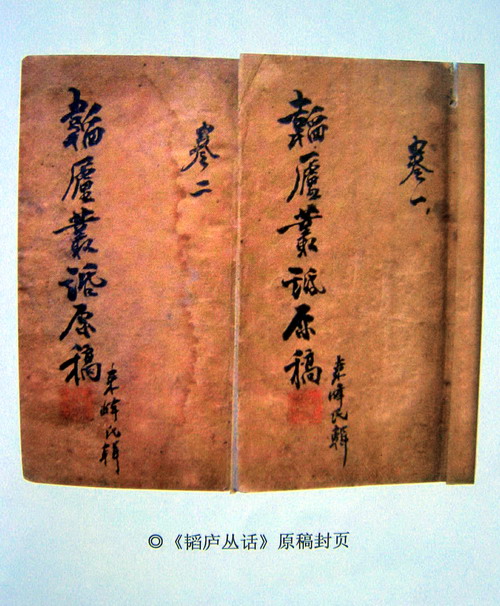 卷一
韜廬叢話原稿
峰氏輯
卷二
韜廬叢話原稿
峰氏輯
◎《韬庐丛话》原稿封页